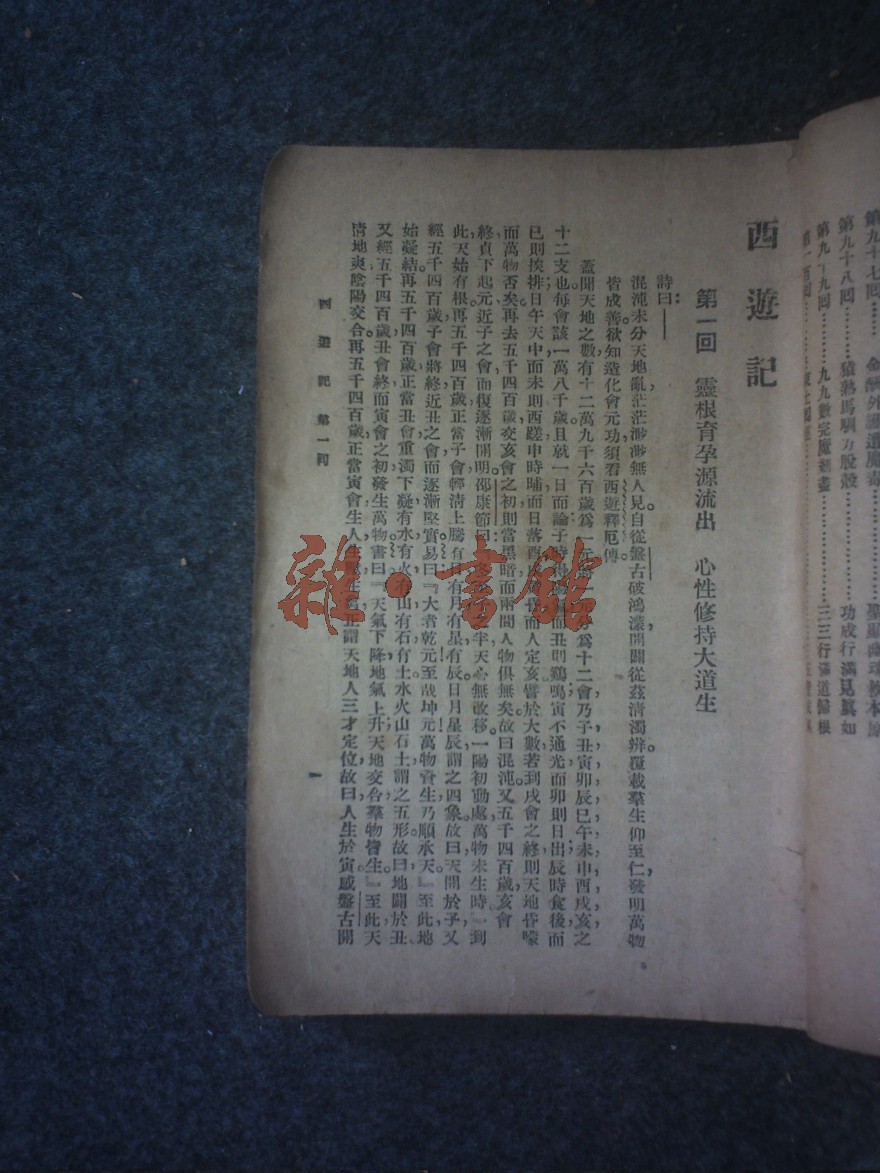 第九十七回………金酬外護遭魔毒………聖顯幽魂救本原
第九十八回………猿熟馬馴方脫殼………功成行滿見眞如
第九十九回………九九數完魔剗盡………三三行滿道歸根
第一百回………
西遊記
第一回　靈根育孕源流出　心性修持大道生
詩曰：——
混沌未分天地亂，茫茫渺渺無人見。自從盤古破鴻濛，開闢從茲清濁辨。覆載羣生仰至仁，發明萬物
皆成善。欲知造化會元功，須看西遊釋厄傳。
蓋聞天地之數，有十二萬九千六百歲爲一元。將一元分爲十二會，乃子丑寅卯辰巳午未申酉戌亥之
十二支也。每會該一萬八百歲。且就一日而論：子時得陽氣而丑則鷄鳴；寅不通光，而卯則日出；辰時食後，而
巳則挨排；日午天中，而未則西蹉；申時晡，而日落酉；戌黃昏，而人定亥。譬於大數，若到戌會之終，則天地昏曚
而萬物否矣。再去五千四百歲，交亥會之初，則當黑暗，而兩間人物俱無矣，故曰混沌。又五千四百歲，亥會
終，貞下起元，近子之會，而復逐漸開明。邵康節曰：『冬至子之半，天心無改移。一陽初動處，萬物未生時。』到
此，天始有根。再五千四百歲，正當子會，輕清上騰，有日有月有星有辰。日月星辰，謂之四象。故曰，天開於子。又
經五千四百歲，子會將終，近丑之會，而逐漸堅實。易曰：『大哉乾元！至哉坤元！萬物資生，乃順承天。』至此，地
始凝結。再五千四百歲，正當丑會，重濁下凝，有水有火有山有石有土。水火山石土，謂之五形。故曰，地闢於丑。
又經五千四百歲，丑會終而寅會之初，發生萬物。書曰：『天氣下降，地氣上升；天地交合，羣物皆生。』至此，天
清地爽，陰陽交合。再五千四百歲，正當寅會，生人生獸生禽，正謂天地人三才定位。故曰，人生於寅。感盤古開
西遊記　第一回
一
雜·書館